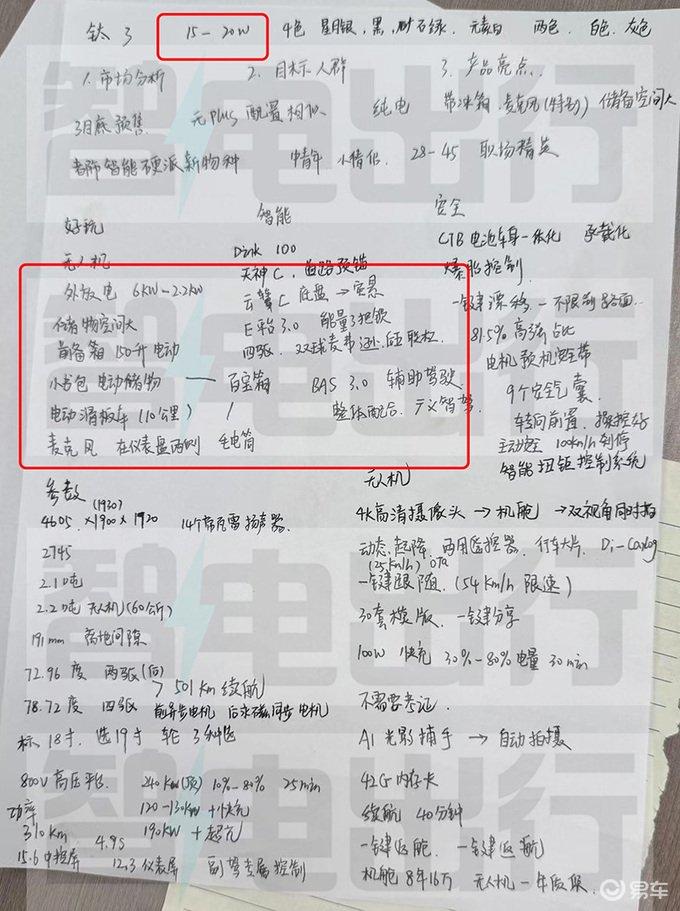 钛3 15-20W 4色 星月银,黑,砂石绿, 元素白 两色, 白色, 灰色
1. 市场分析 2. 目标人群 3. 产品亮点..
3月底预售 元PLUS 配置相似 纯电 带冰箱,麦克风(特别) 储备空间大
者称智能硬派新物种 中青年 小情侣, 28-45 职场精英
好玩 智能 安全
无人机 Dink 100 CTB电池车身一体化 承载化
外放电 6KW-2.2KW 天神C, 爆胎控制
云辇C 底盘→实悬 一键漂移,-不限制路面..
储物空间大 E平台3.0 能量3把锁 81.5%高强占比
前备箱 150升电动 四驱, 电机预机安全带
小书包 电动储物 —— 百宝箱 BAS 3.0 辅助驾驶, 9个安全气囊
电动滑板车(10公里) / 整体配合, 天义智驾, 车转向前置,操控好
麦克风 在仪表盘两侧 手电筒 主动安全 100km/h刹停
智能扭矩控制系统
参数 (1930) 无人机
4605, ×1900×1920 14个帝瓦雷扬声器, 4K高清摄像头→机舱→双视角同时拍
2745 动态,起降,两用遥控器,行车大片,
2.1吨 (25km/h) OTA
一键跟随,(54 Km/h 限速)
2.2吨 无人机(60公斤) 30套模版, 一键分享
191mm 离地间隙
72.96度 两驱(后) > 501Km续航 100W 快充 30%-80%电量 30min
78.72度 四驱 前异步电机 后永磁同步电机 不需要考证,
标18寸,选19寸 轮3种选 AI光影捕手→自动拍摄
800V高压平台, 240Kw(顶) 10%-80% 25min 42G内存卡
功率 120-130Kw+快充 续航 40分钟
310Km 190KW+超充 一键返舱, 一键返航
4.9S
15.6中控屏 12.3仪表屏 副驾专属控制 机舱8年16万 无人机一年质保,
智电出行
智电出行
智电出行
易车